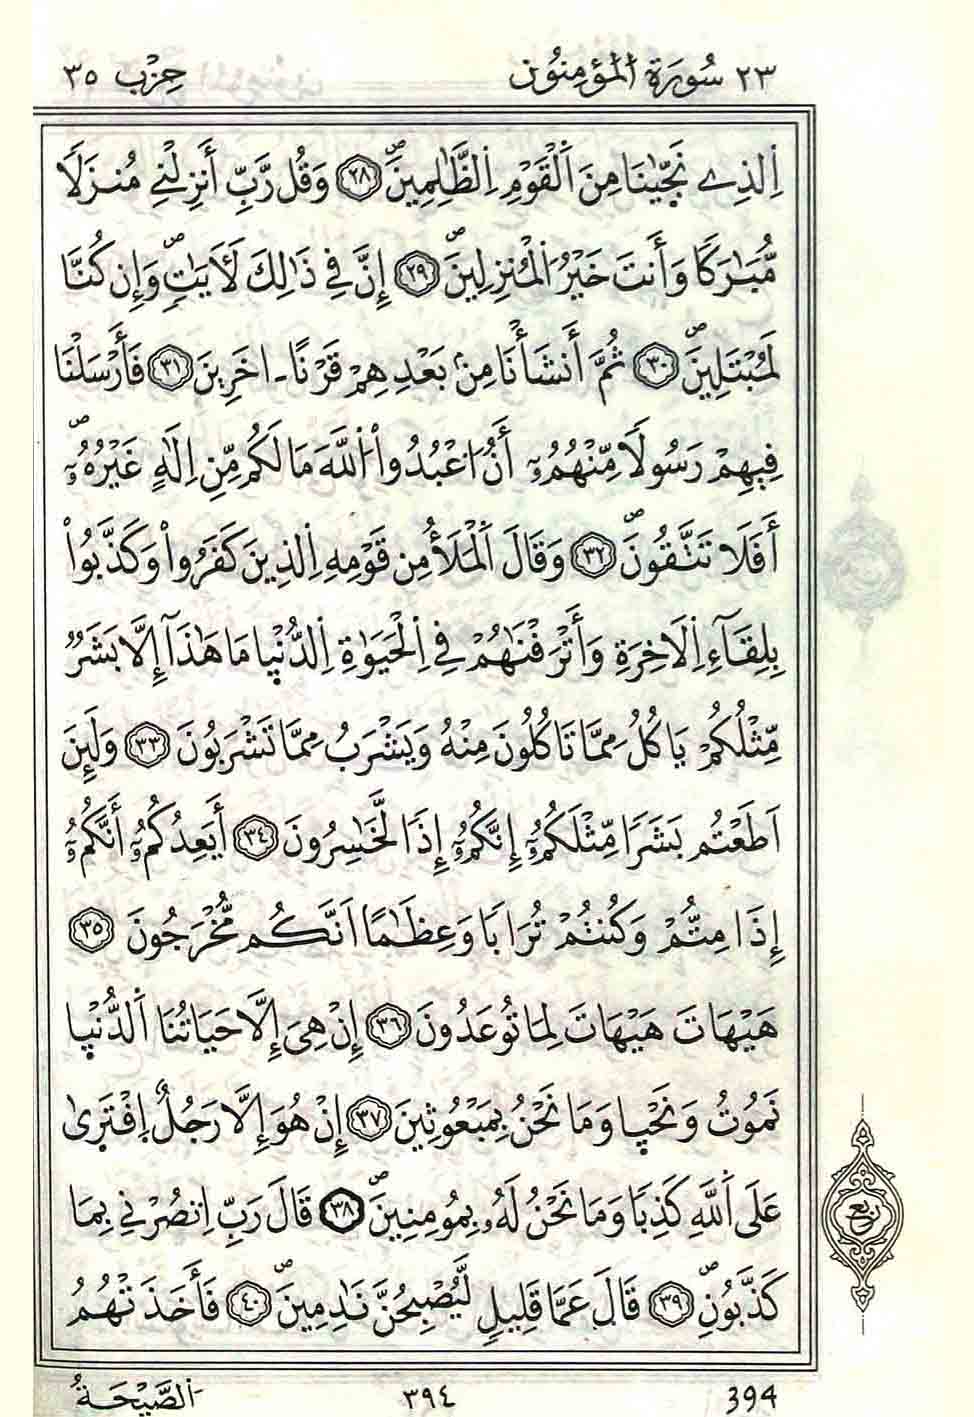 ٢٣ سُورَةُ اُ۬لْمُؤْمِنُونَ حِزْب ٣٥
اِ۬لذِے نَجَّيٰنَا مِنَ اَ۬لْقَوْمِ اِ۬لظَّٰلِمِينَۖ ٢٨ وَقُل رَّبِّ أَنزِلْنِے مُنزَلاٗ
مُّبَٰرَكاٗ وَأَنتَ خَيْرُ اُ۬لْمُنزِلِينَۖ ٢٩ إِنَّ فِے ذَٰلِكَ لَأٓيَٰتٖۖ وَإِن كُنَّا
لَمُبْتَلِينَۖ ٣٠ ثُمَّ أَنشَأْنَا مِنۢ بَعْدِهِمْ قَرْناً ـ اخَرِينَ ٣١ فَأَرْسَلْنَا
فِيهِمْ رَسُولاٗ مِّنْهُمُۥٓ أَنُ اُ۟عْبُدُواْ اُ۬للَّهَ مَا لَكُم مِّنِ اِلَٰهٍ غَيْرُهُۥٓۖ
أَفَلَا تَتَّقُونَۖ ٣٢ وَقَالَ اَ۬لْمَلَأُ مِن قَوْمِهِ اِ۬لذِينَ كَفَرُواْ وَكَذَّبُواْ
بِلِقَآءِ اِ۬لَاخِرَةِ وَأَتْرَفْنَٰهُمْ فِے اِ۬لْحَيَوٰةِ اِ۬لدُّنْي۪ا مَا هَٰذَآ إِلَّا بَشَرٞ
مِّثْلُكُمْ يَاكُلُ مِمَّا تَاكُلُونَ مِنْهُ وَيَشْرَبُ مِمَّا تَشْرَبُونَ ٣٣ وَلَئِنَ
اَطَعْتُم بَشَراٗ مِّثْلَكُمُۥٓ إِنَّكُمُۥٓ إِذاٗ لَّخَٰسِرُونَ ٣٤ أَيَعِدُكُمُۥٓ أَنَّكُمُۥٓ
إِذَا مِتُّمْ وَكُنتُمْ تُرَاباٗ وَعِظَٰماً اَنَّكُم مُّخْرَجُونَ ٣٥
هَيْهَاتَ هَيْهَاتَ لِمَا تُوعَدُونَ ٣٦ إِنْ هِيَ إِلَّا حَيَاتُنَا اَ۬لدُّنْي۪ا
نَمُوتُ وَنَحْي۪ا وَمَا نَحْنُ بِمَبْعُوثِينَ ٣٧ إِنْ هُوَ إِلَّا رَجُلٌ اِ۪فْتَر۪ىٰ
عَلَى اَ۬للَّهِ كَذِباٗ وَمَا نَحْنُ لَهُۥ بِمُومِنِينَۖ ٣٨ قَالَ رَبِّ اِ۟نصُرْنِے بِمَا
كَذَّبُونِۖ ٣٩ قَالَ عَمَّا قَلِيلٖ لَّيُصْبِحُنَّ نَٰدِمِينَۖ ٤٠ فَأَخَذَتْهُمُ
ربع
اُ۬لصَّيْحَةُ ٣٩٤ 394